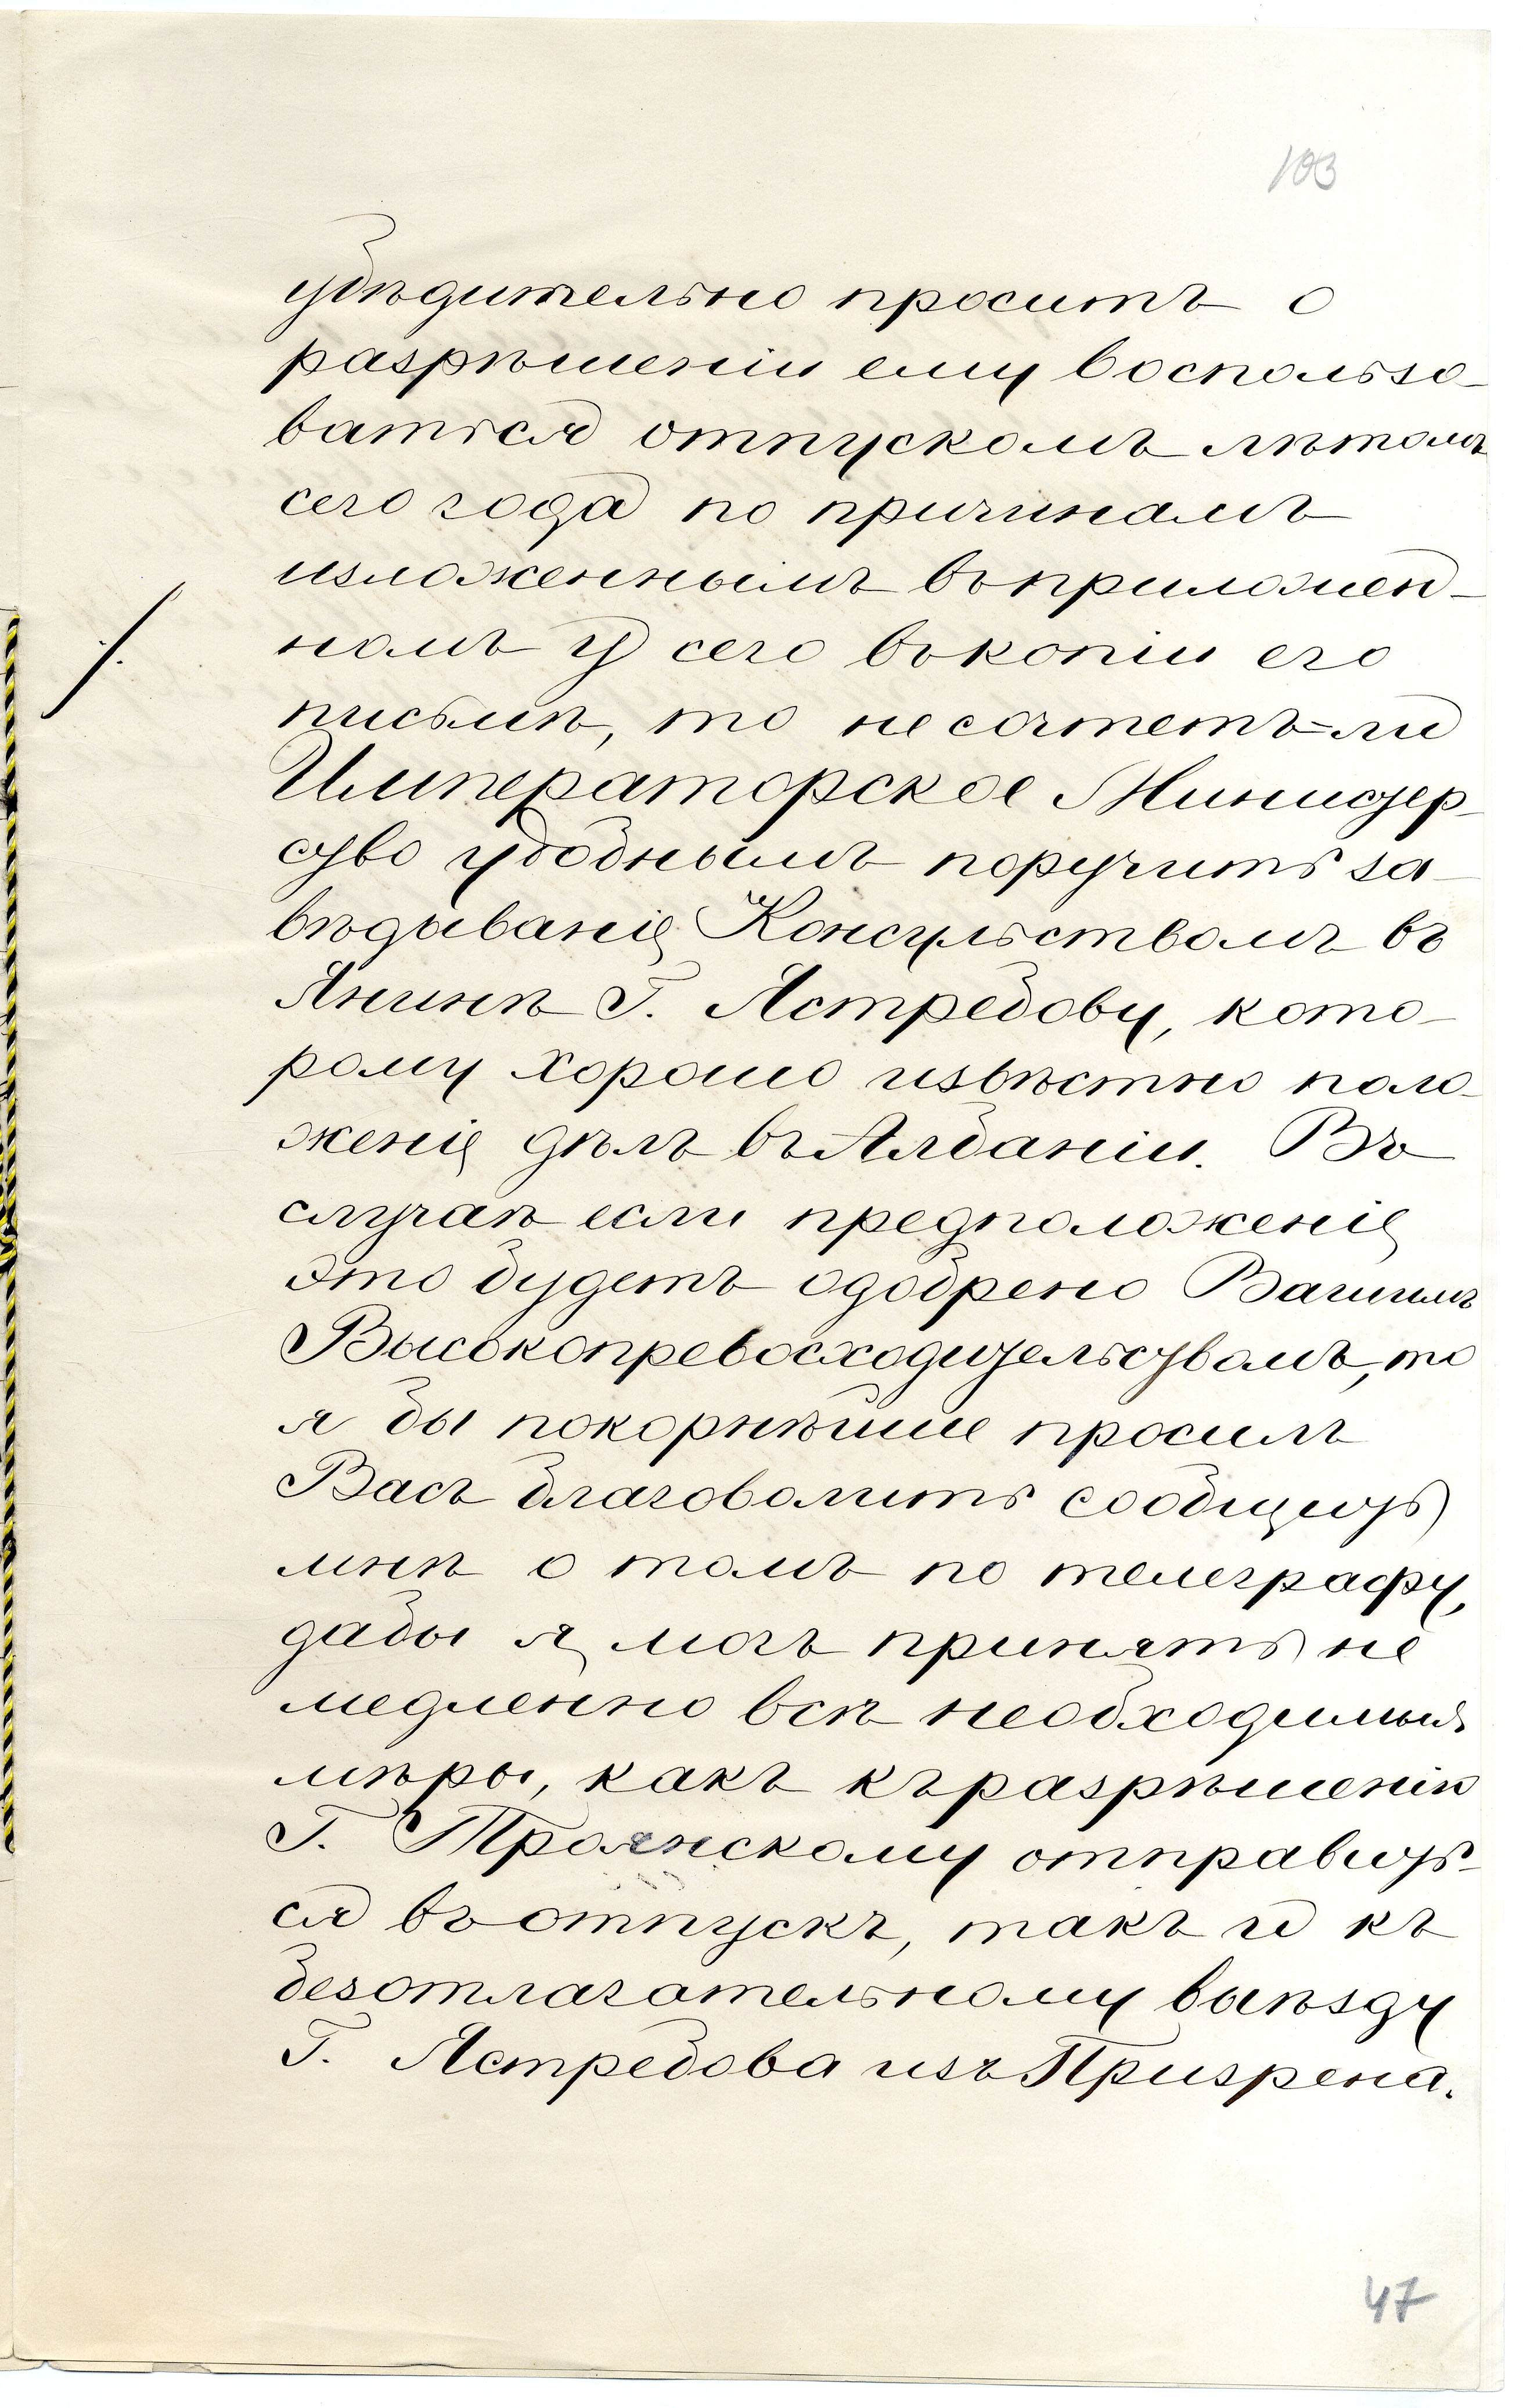 103
убѣдительно проситъ о
разрѣшеніи ему воспользо-
ваться отпускомъ лѣтомъ
сего года по причинамъ
изложеннымъ въ приложен-
номъ у сего въ копіи его
письмѣ, то не сочтетъ=ли
Императорское Министер-
ство удобнымъ поручить за-
вѣдываніе Консульствомъ въ
Янинѣ Г. Ястребову, кото-
рому хорошо извѣстно поло-
женіе дѣлъ въ Албаніи. Въ
случаѣ если предположеніе
это будетъ одобрено Вашимъ
Высокопревосходительствомъ, то
я бы покорнѣйше просилъ
Васъ благоволить сообщить
мнѣ о томъ по телеграфу,
дабы я могъ принять не
медленно всѣ необходимыя
мѣры, какъ къ разрѣшенію
Г. Троянскому отправить-
ся въ отпускъ, такъ и къ
безотлагательному выѣзду
Г. Ястребова изъ Призрена.
47